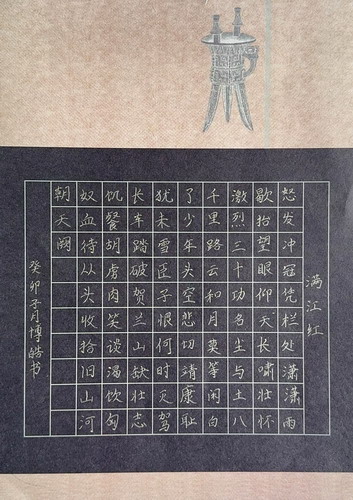 满江红
怒发冲冠凭栏处潇潇雨
歇抬望眼仰天长啸壮怀
激烈三十功名尘与土八
千里路云和月莫等闲白
了少年头空悲切靖康耻
犹未雪臣子恨何时灭驾
长车踏破贺兰山缺壮志
饥餐胡虏肉笑谈渴饮匈
奴血待从头收拾旧山河
朝天阙
癸卯子月博皓书